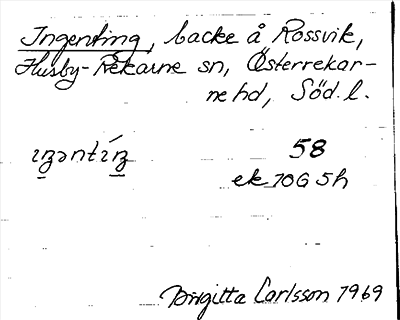 Ingenting, backe å Rossvik,
Husby-Rekarne sn, Österrekar-
ne hd, Söd. l.
58
ek 10G 5h
Birgitta Carlsson 1969